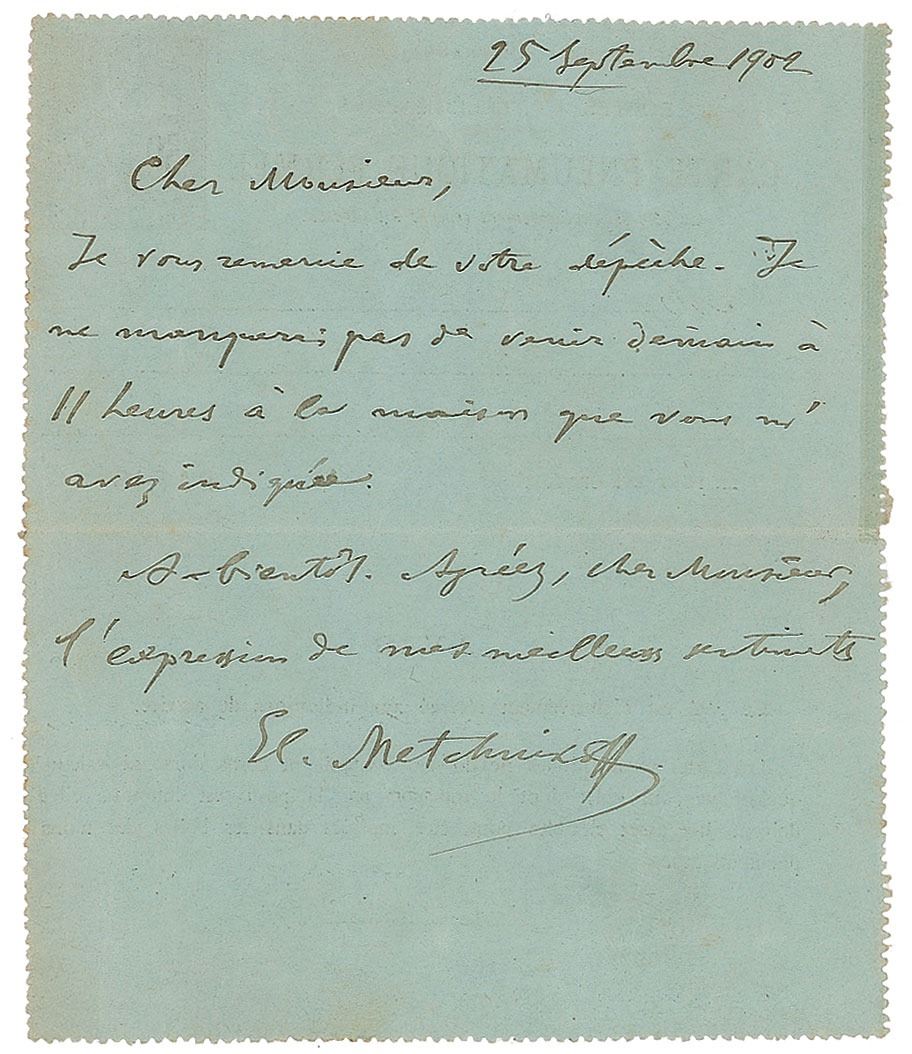 25 Septembre 1902
Cher Monsieur,
Je vous remercie de votre dépèche. Je
ne manquerai pas de venir demain à
11 heures à la maison que vous m'
avez indiquée.
A bientôt. Agréez, cher Monsieur,
l'expression de mes meilleurs sentiments
El. Metchnikoff